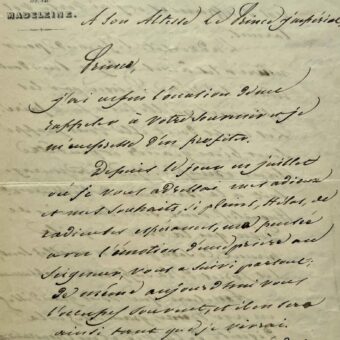 DE LA
MADELEINE.
A Son Altesse Le Prince Impérial,
Prince,
j'ai enfin l'occasion de me
rappeler à votre souvenir et je
m'empresse d'en profiter.
Depuis le jour en juillet
où je vous adressai mes adieux
et mes souhaits, si pleins, hélas, de
radieuses espérances, ma pensée
avec l'émotion d'une prière au
Seigneur, vous a suivi partout;
de même aujourd'hui vous
l'occupez souvent, et il en sera
ainsi tant que je vivrai.